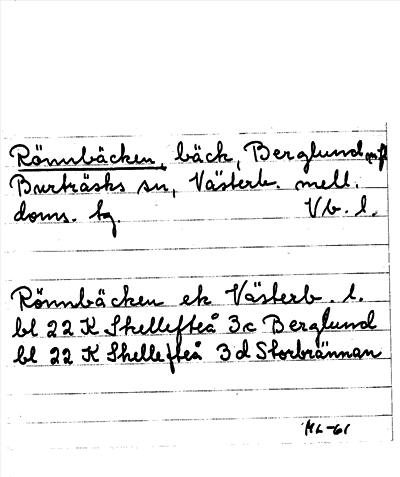 Rönnbäcken, bäck, Berglund m fl
Burträsks sn, Västerb. mell.
doms. tg Vb. l.
Rönnbäcken ek Västerb. l.
bl 22 K Skellefteå 3c Berglund
bl 22 K Skellefteå 3d Storbrännan